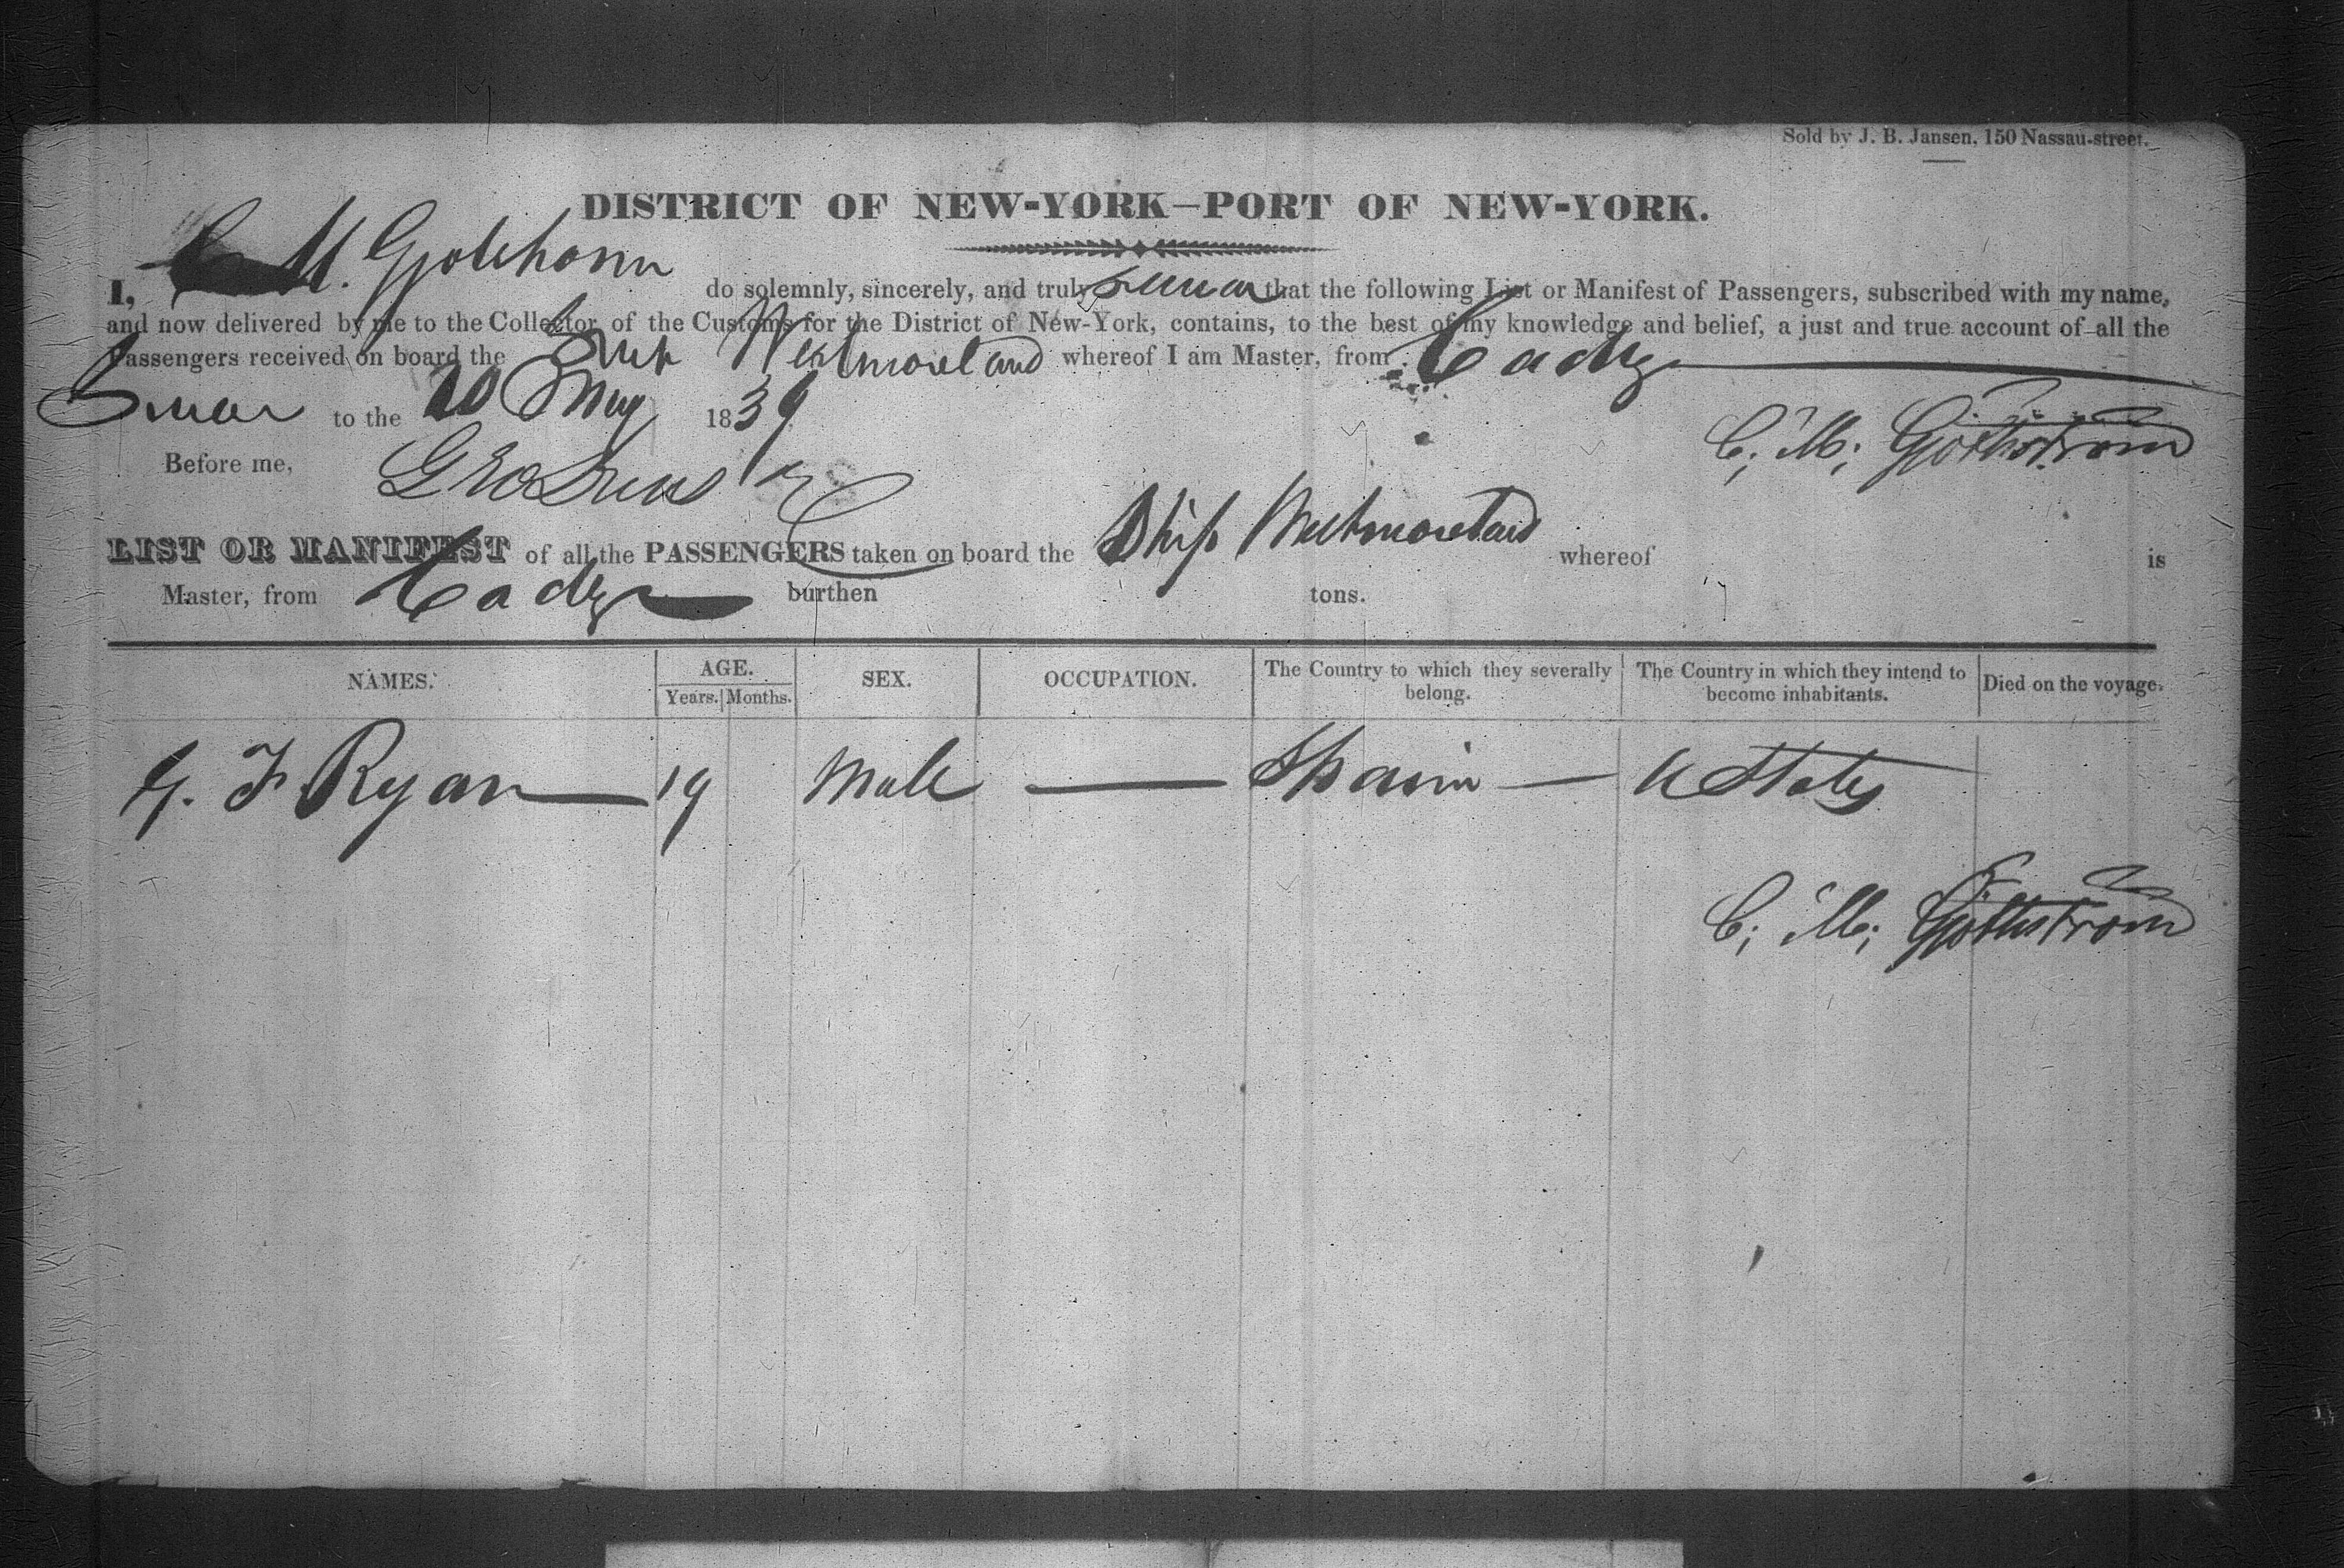 Sold by J. B. Jansen, 150 Nassau-street.
DISTRICT OF NEW-YORK—PORT OF NEW-YORK.
I, C M. do solemnly, sincerely, and truly swear that the following List or Manifest of Passengers, subscribed with my name,
and now delivered by me to the Collector of the Customs for the District of New-York, contains, to the best of my knowledge and belief, a just and true account of all the
Passengers received on board the Ship Westmoreland whereof I am Master, from Cadiz
Swear to the 20 May 1839
C; M; Gjöthström
Before me,
LIST OR MANIFEST of all the PASSENGERS taken on board the Ship Westmoreland whereof is
Master, from Cadiz burthen tons.
NAMES. AGE. SEX. OCCUPATION. The Country to which they severally belong. The Country in which they intend to become inhabitants. Died on the voyage.
Years. Months.
G. F Ryan — 19 Male — Spain — U States
C; M; Gjöthström